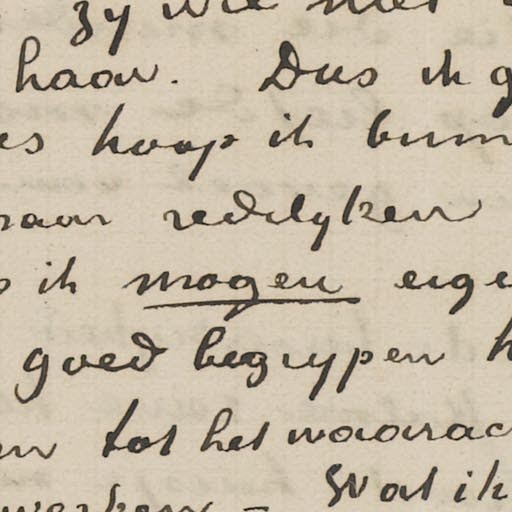 zy wil niet
haar. Dus ik g
es hoop ik binn
naar redelyken
ik mogen eige
goed begrypen h
en tot het waarac
werken – Wat ik